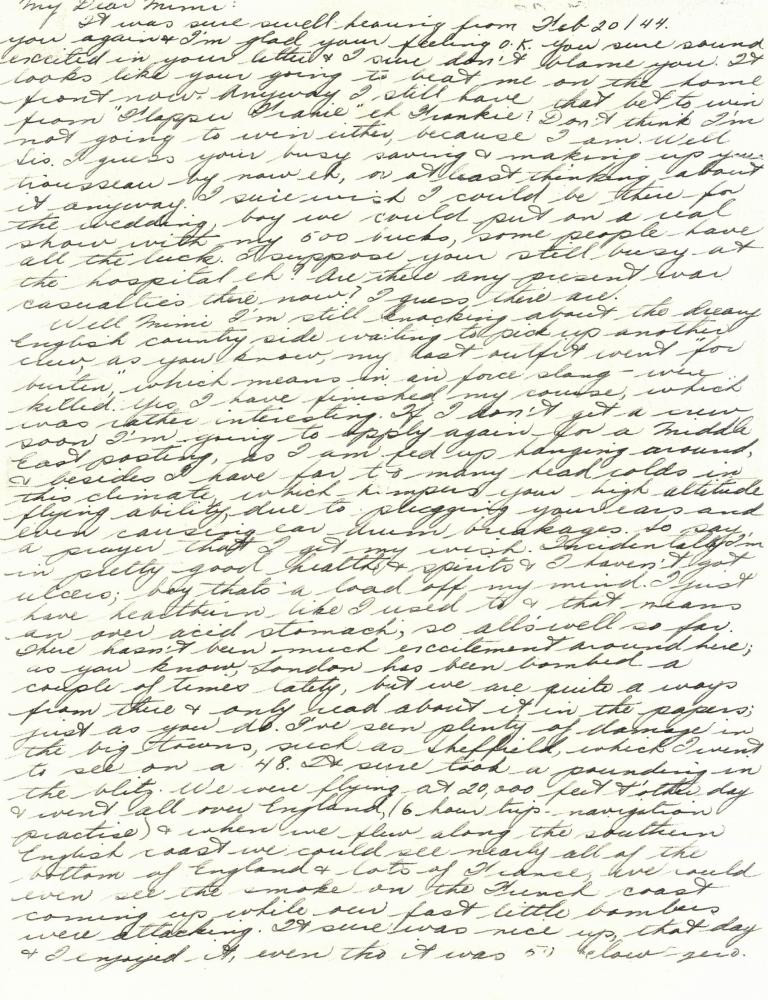 My Dear Mimi:
It was sure swell hearing from Feb 20/44.
you again & I'm glad your feeling O.K. You sure sound
excited in your letter & I sure don't blame you. It
looks like your going to beat me on the home
front now. Anyway I still have that bet to win
from "Flapper Franie" eh Frankie? Don't think I'm
not going to win either, because I am. Well
Sis. I guess your busy saving & making up your
trousseau by now eh, or at least thinking about
it anyway. I sure wish I could be there for
the wedding, boy we could put on a real
show with my 500 bucks, some people have
all the luck. I suppose your still busy at
the hospital eh? Are there any present war
casualties there now? I guess there are.
Well Mimi I'm still knocking about the dreary
English country side waiting to pick up another
crew, as you know, my last outfit went "for
burten", which means in air force slang - were
killed. Yes, I have finished my course, which
was rather interesting. If I don't get a crew
soon I'm going to apply again for a Middle
East posting, as I am fed up hanging around,
& besides I have far to many head colds in
this climate, which hampers your high altitude
flying ability, due to plugging your ears and
even causing ear drum breakages. So say
a prayer that I get my wish. Incidentally I'm
in pretty good health & spirits & I haven't got
ulcers; boy that's a load off my mind. I just
have heartburn like I used to & that means
an over acid stomach, so all's well so far.
There hasn't been much excitement around here;
as you know, London has been bombed a
couple of times lately, but we are quite a ways
from there & only read about it in the papers;
just as you do. I've seen plenty of damage in
the big towns, such as Sheffield, which I went
to see on a 48. It sure took a pounding in
the blitz. We were flying at 20,000 feet t'other day
& went all over England, (6 hour trip - navigation
practise) & when we flew along the southern
English coast we could see nearly all of the
bottom of England & lots of France, we could
even see the smoke on the French coast
coming up while our fast little bombers
were attacking. It sure was nice up, that day
& I enjoyed it, even tho it was below zero.